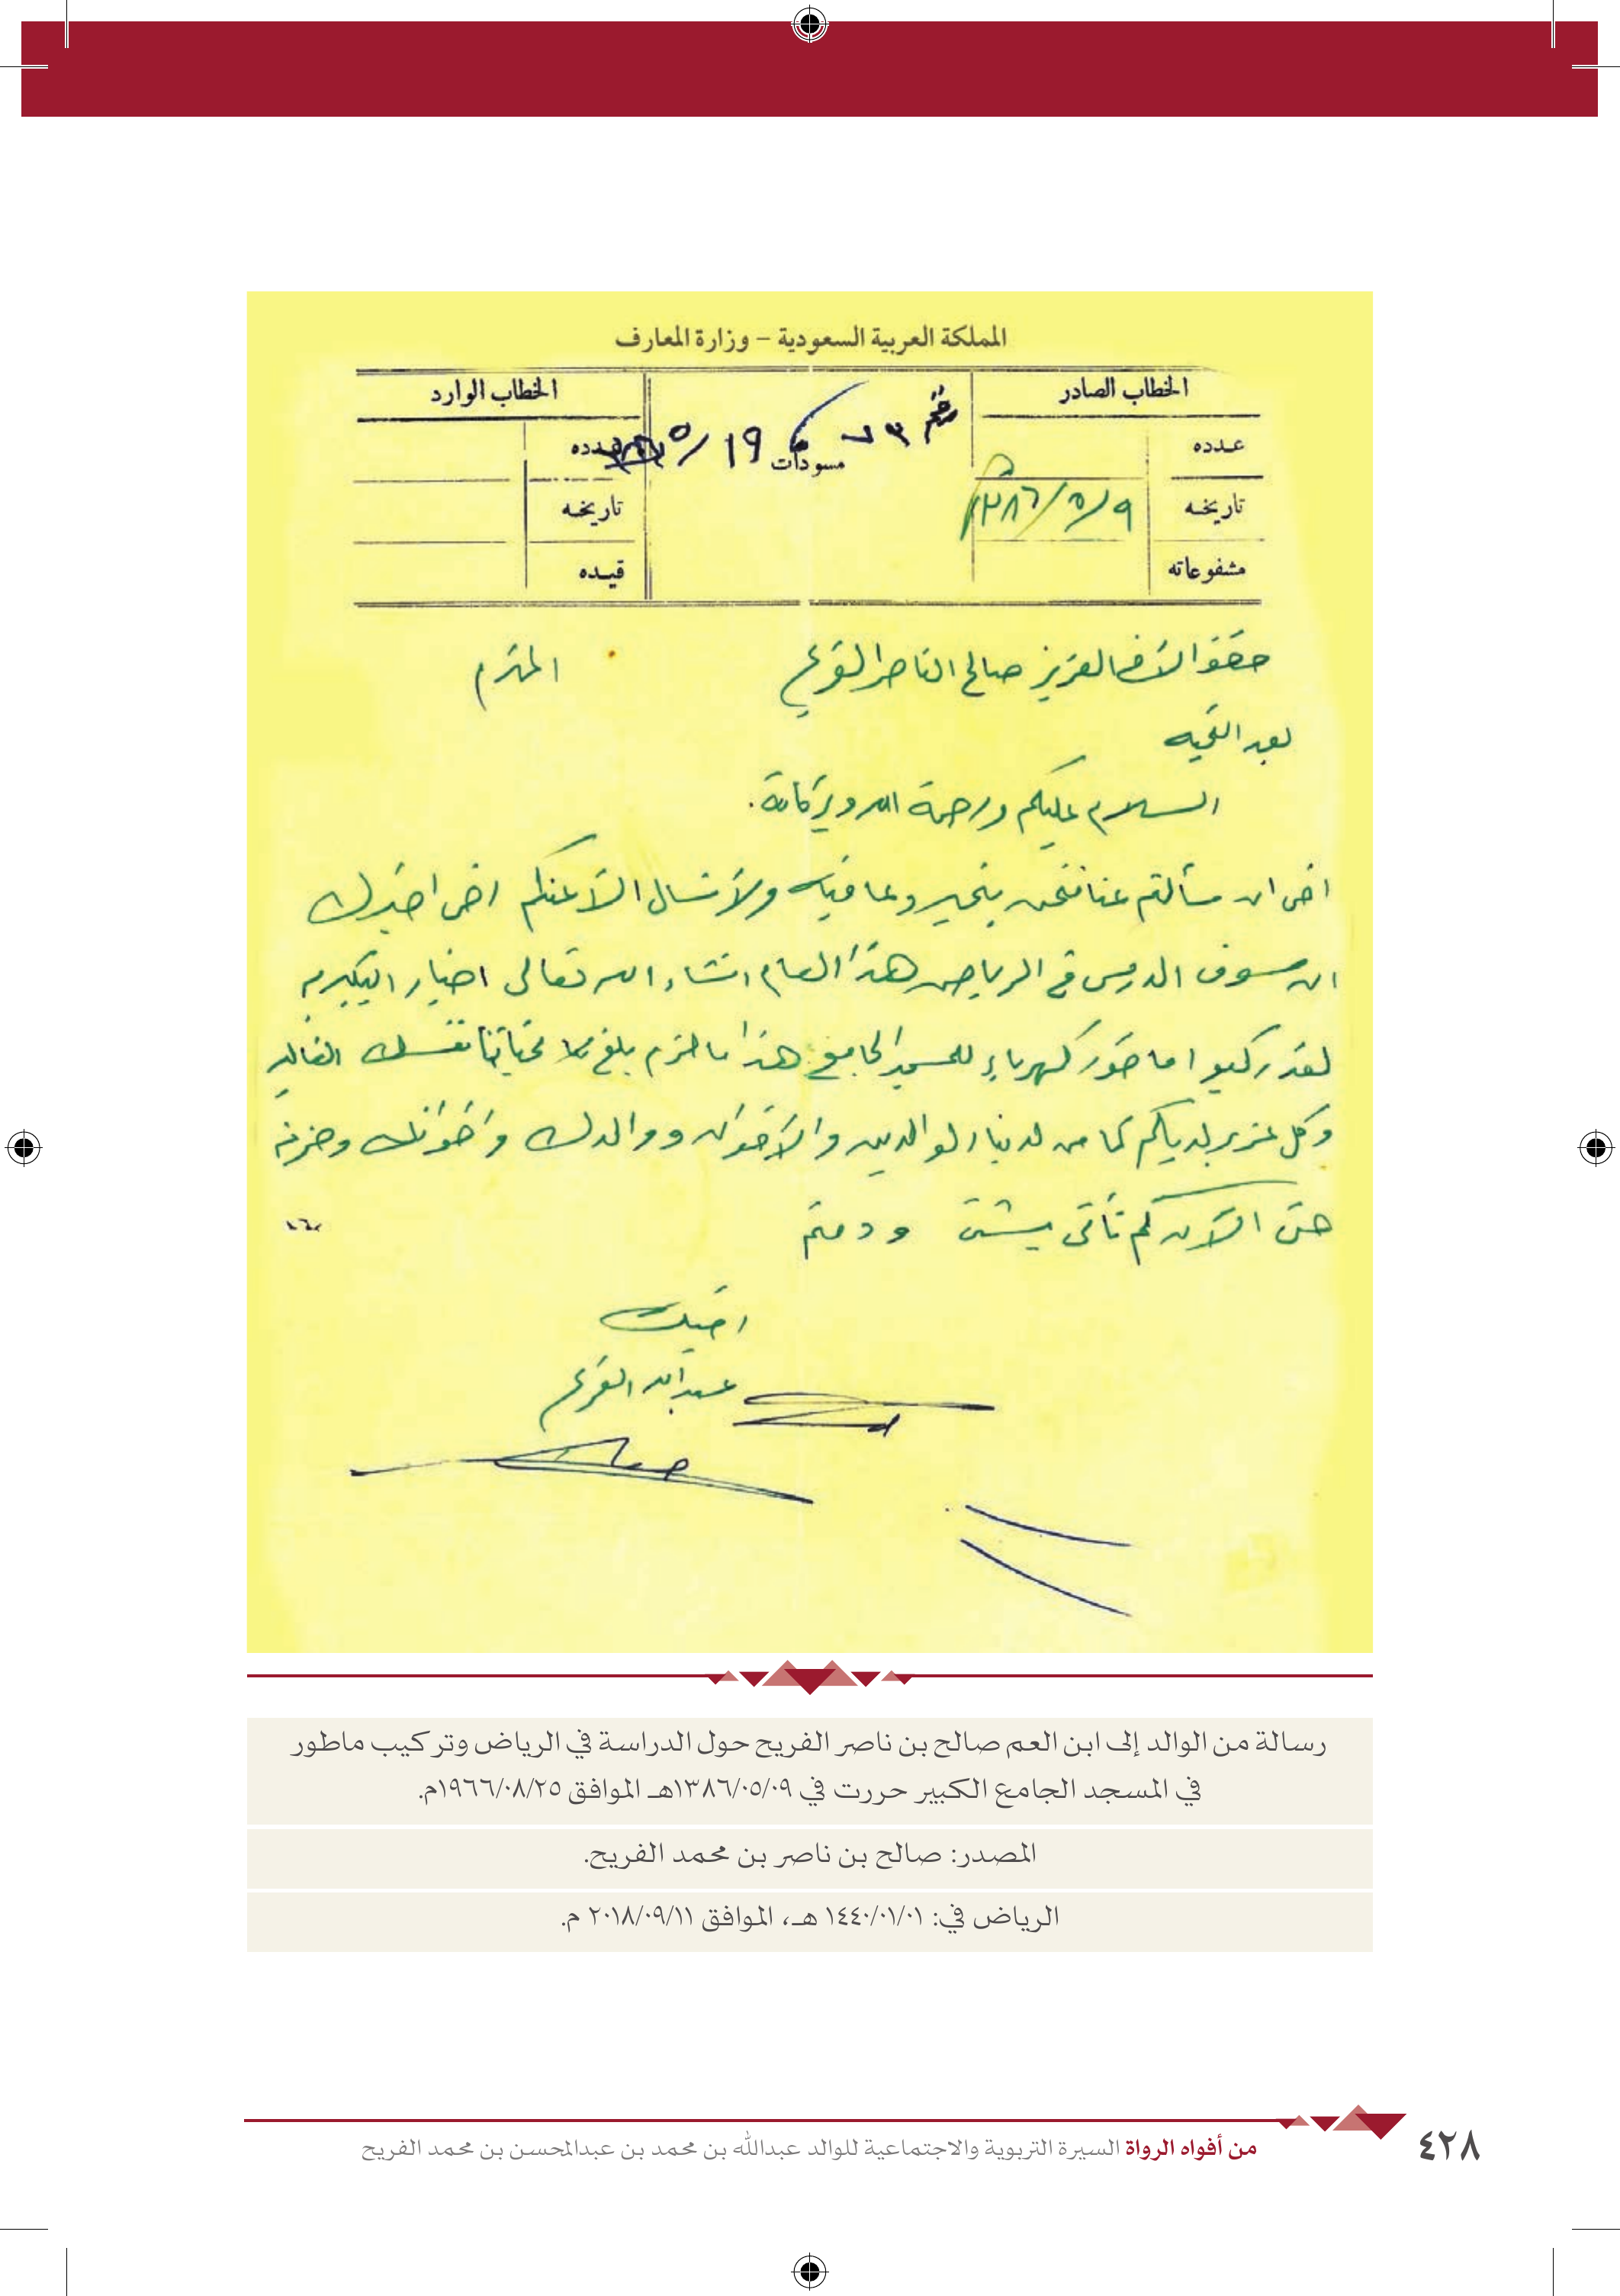 المملكة العربية السعودية – وزارة المعارف
الخطاب الصادر
عدده
تاريخه ١٣٨٦/٥/٩
مشفوعاته
رقم ٧٣
مسودات
١٩/٥
الخطاب الوارد
عدده
تاريخه
قيده
الاخ العزيز صالح الناصر الفريح المحترم
بعد التحيه
السلام عليكم ورحمة الله وبركاته.
اخي ان سألتم عنا فنحن بخير وعافيه ولا نسال الا عنكم اخي اخبرك
ان سوف الدرس في الرياض هذا العام انشاء الله تعالى اخبار البكيريه
لقد ركبوا ماطور كهرباء للمسجد الجامع هذا مالزم بلغ تحياتنا نفسك الغاليه
وكل عزيز لديكم كما من لدينا الوالدين والاخوان ووالدك واخوانك
حتى الآن لم تأتي ودمتم
اخيك
عبدالله الفريح
رسالة من الوالد إلى ابن العم صالح بن ناصر الفريح حول الدراسة في الرياض وتركيب ماطور
في المسجد الجامع الكبير حررت في ١٣٨٦/٠٥/٠٩هـ الموافق ١٩٦٦/٠٨/٢٥م.
المصدر: صالح بن ناصر بن محمد الفريح.
الرياض في: ١٤٤٠/٠١/٠١ هـ، الموافق ٢٠١٨/٠٩/١١ م.
من أفواه الرواة السيرة التربوية والاجتماعية للوالد عبدالله بن محمد بن عبدالمحسن بن محمد الفريح
٤٢٨